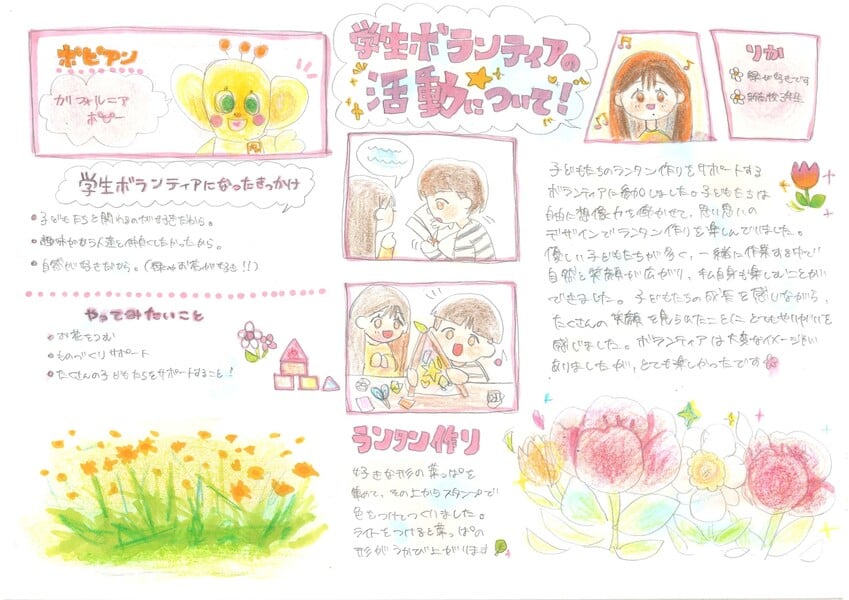 学生ボランティアの
活動について!
ポピアン
カリフォルニア
ポピー
りか
学生ボランティアになったきっかけ
・子どもたちと関わるのが好きだから。
・趣味が合う人達と仲良くしたかったから。
・自然が好きだから。(お花が好き!!)
やってみたいこと
・お花をつむ
・ものづくりサポート
・たくさんの子どもたちをサポートすること!
ランタン作り
好きな形の葉っぱを
集めて、その上からスタンプで
色をつけてつくりました。
ライトをつけると葉っぱの
形がうかび上がります
子どもたちのランタン作りをサポートする
ボランティアに参加しました。子どもたちは
自由に想像力を働かせて、思い思いの
デザインでランタン作りを楽しんでいました。
優しい子どもたちが多く、一緒に作業する中で
自然と笑顔が広がり、私自身も楽しむことが
できました。子どもたちの成長を感じながら、
たくさんの笑顔を見られたことにとてもやりがいを
感じました。ボランティアは大変なイメージが
ありましたが、とても楽しかったです